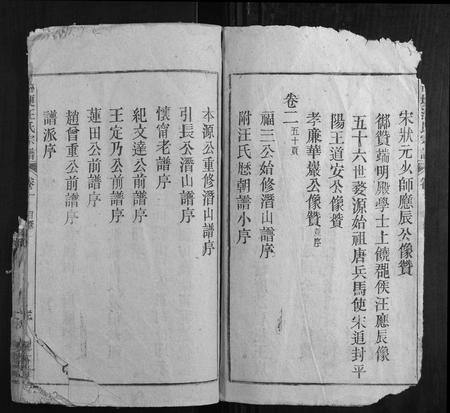 宋狀元少師應辰公像贊
御贊端明殿學士上饒郡侯汪應辰像
五十六世婺源始祖唐兵馬使宋追封平
陽王道安公像贊
孝廉華巖公像贊 並序
卷二 五十頁
福三公始修潛山譜序
附汪氏歷朝譜小序
本源公重修潛山譜序
引長公潛山譜序
懷甯老譜序
紀文達公前譜序
王定乃公前譜序
蓮田公前譜序
趙曾重公前譜序
譜派序
汪氏宗譜
卷